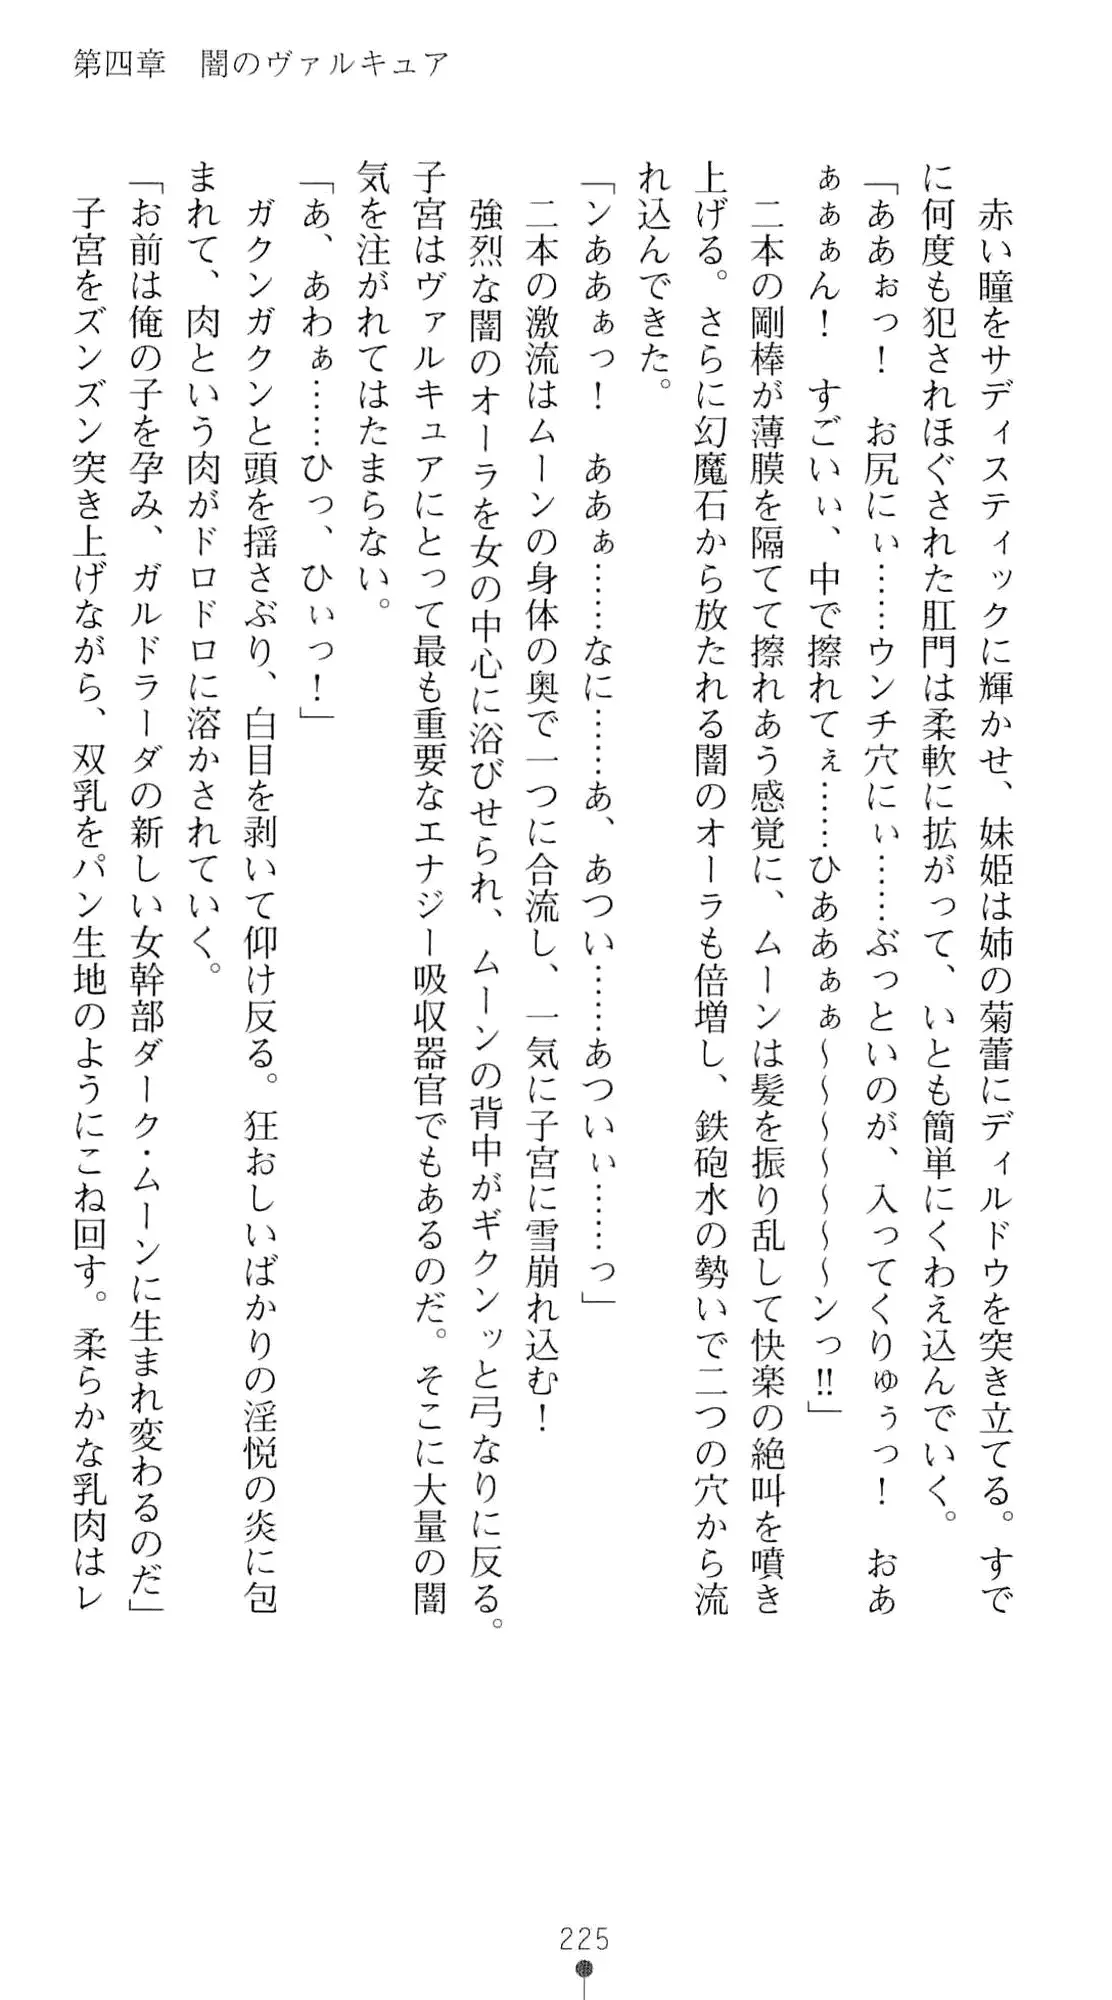 第四章　闇のヴァルキュア
赤い瞳をサディスティックに輝かせ、妹姫は姉の菊蕾にディルドウを突き立てる。すで
に何度も犯されほぐされた肛門は柔軟に拡がって、いとも簡単にくわえ込んでいく。
「ああぉっ！　お尻にぃ……ウンチ穴にぃ……ぶっといのが、入ってくりゅぅっ！　おあ
ぁぁぁん！　すごいぃ、中で擦れてぇ……ひああぁぁ～～～～～～ンっ‼」
二本の剛棒が薄膜を隔てて擦れあう感覚に、ムーンは髪を振り乱して快楽の絶叫を噴き
上げる。さらに幻魔石から放たれる闇のオーラも倍増し、鉄砲水の勢いで二つの穴から流
れ込んできた。
「ンああぁっ！　ああぁ……なに……あ、あつい……あついぃ……っ」
二本の激流はムーンの身体の奥で一つに合流し、一気に子宮に雪崩れ込む！
強烈な闇のオーラを女の中心に浴びせられ、ムーンの背中がギクンッと弓なりに反る。
子宮はヴァルキュアにとって最も重要なエナジー吸収器官でもあるのだ。そこに大量の闇
気を注がれてはたまらない。
「あ、あわぁ……ひっ、ひぃっ！」
ガクンガクンと頭を揺さぶり、白目を剥いて仰け反る。狂おしいばかりの淫悦の炎に包
まれて、肉という肉がドロドロに溶かされていく。
「お前は俺の子を孕み、ガルドラーダの新しい女幹部ダーク・ムーンに生まれ変わるのだ」
子宮をズンズン突き上げながら、双乳をパン生地のようにこね回す。柔らかな乳肉はレ
225